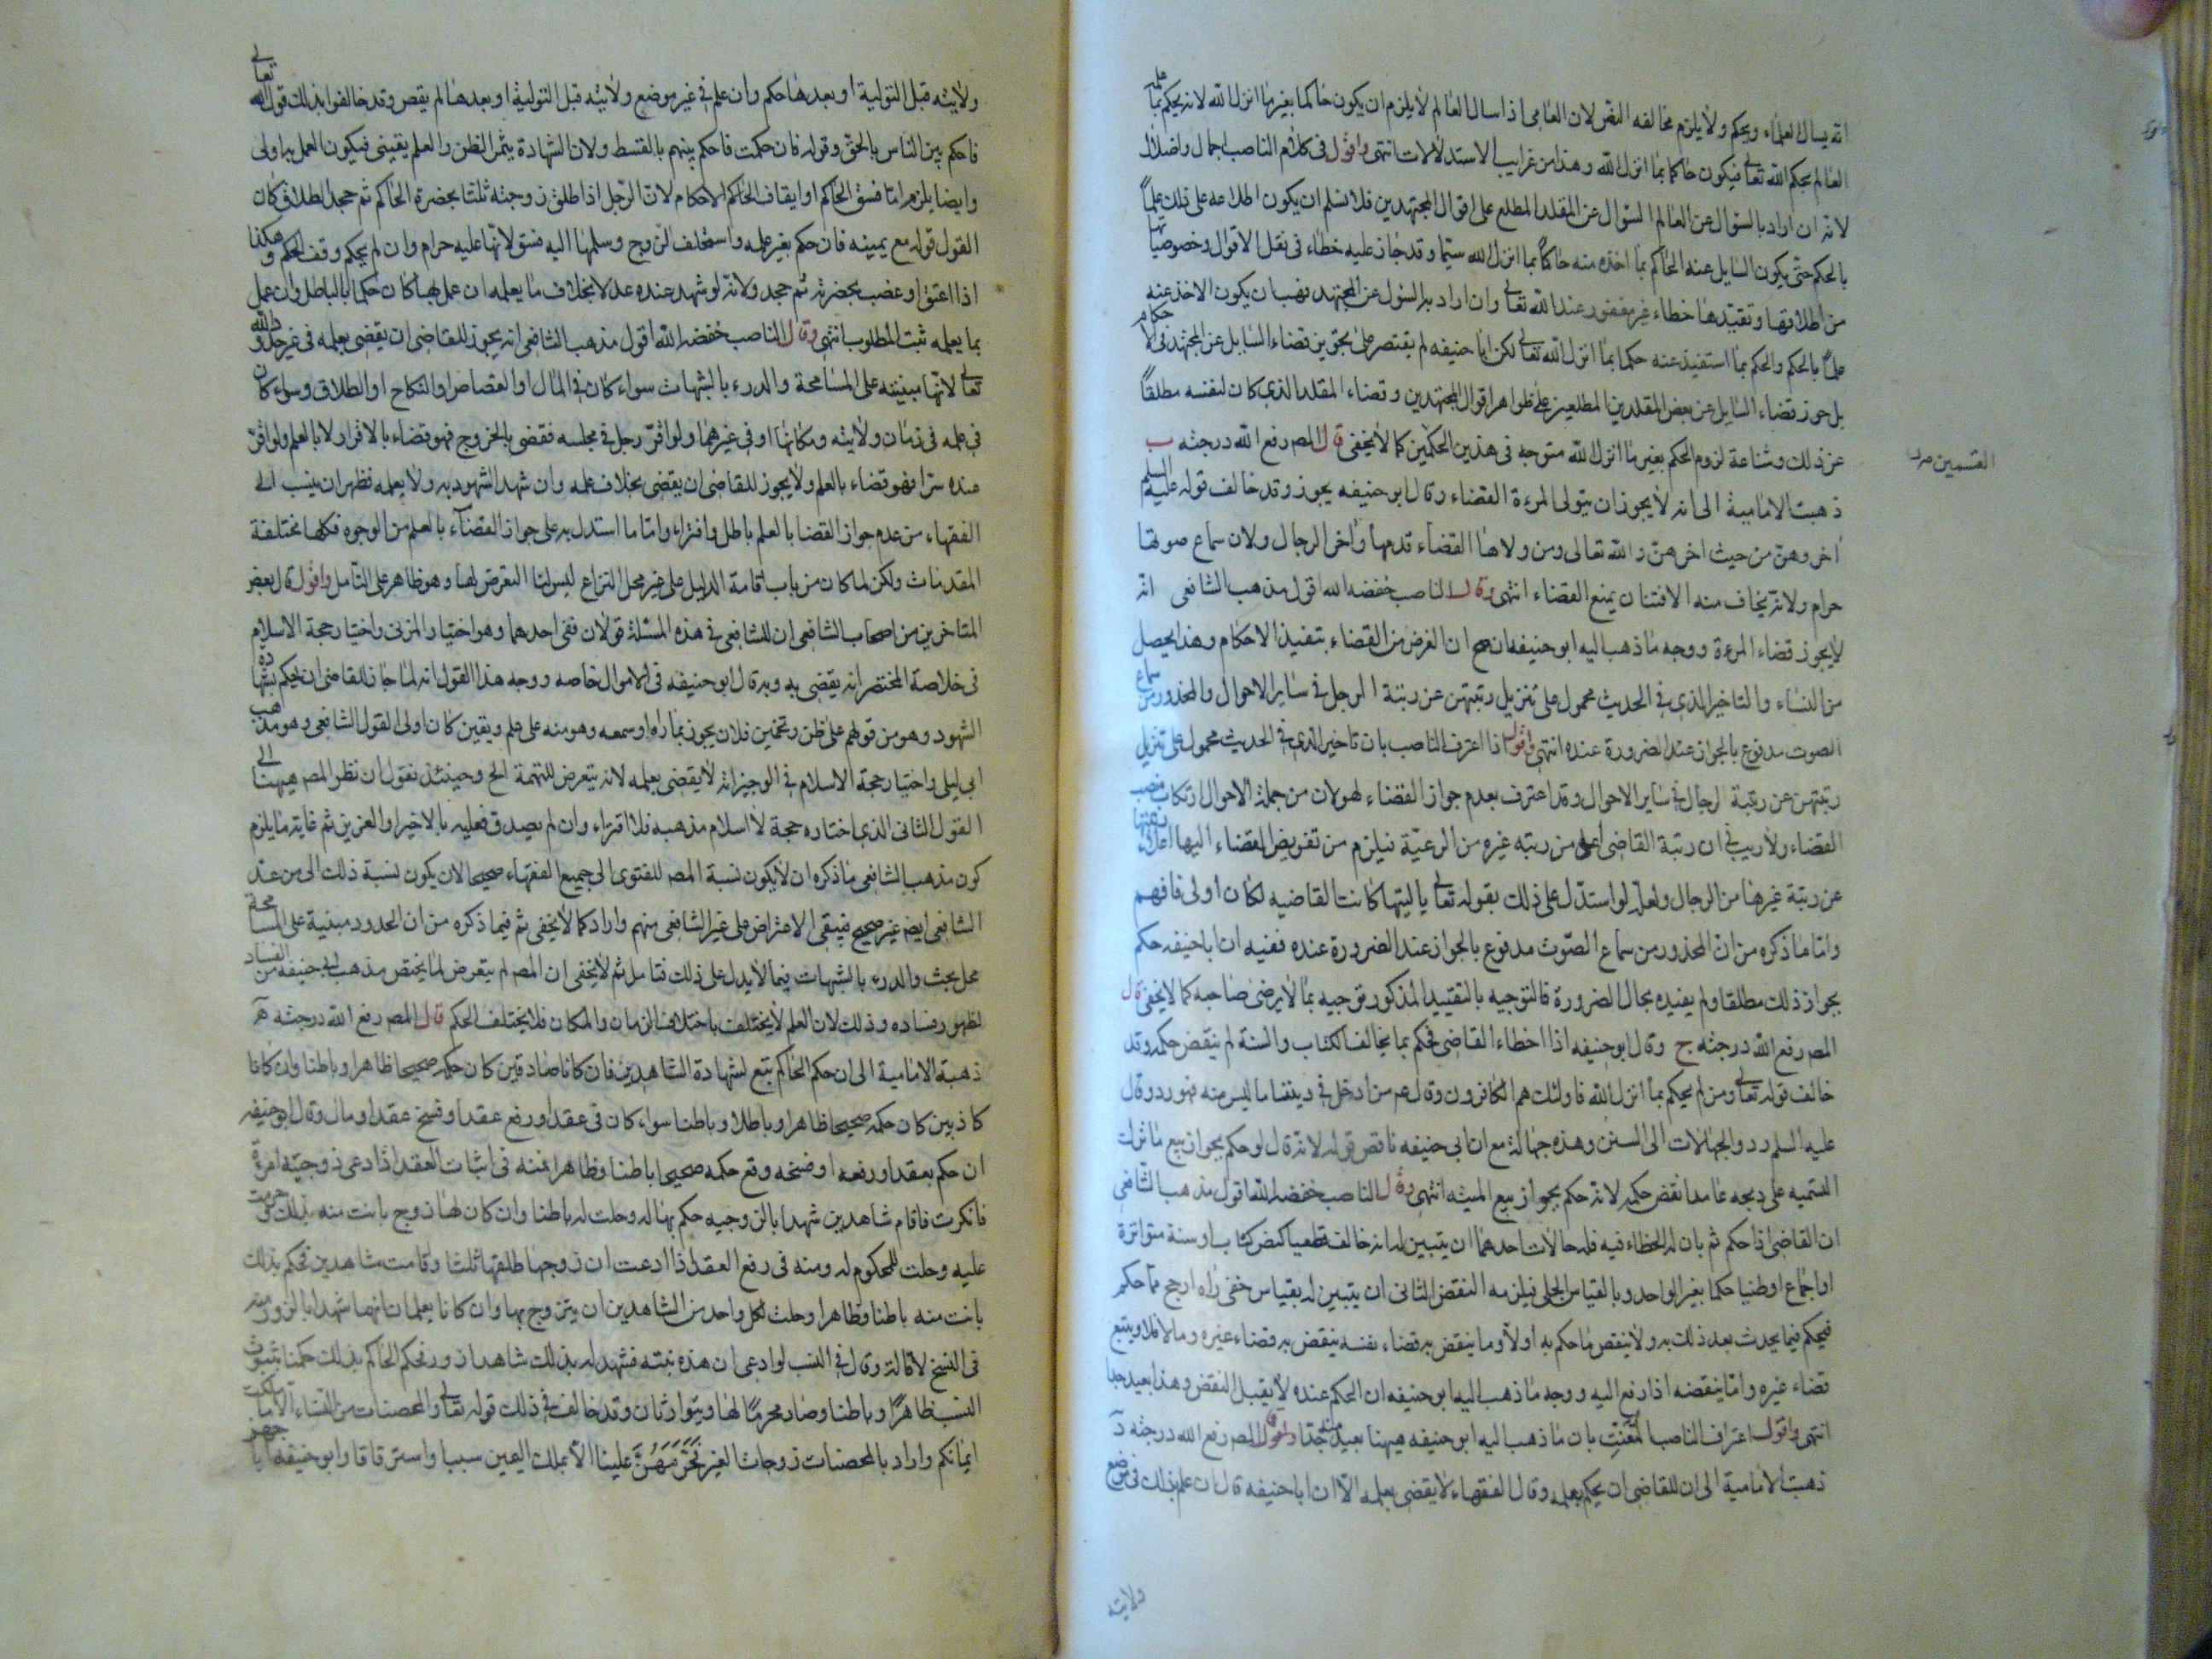 انه يسال العلماء ويحكم ولا يلزم مخالفه النص لان العامى اذا سال العالم لا يلزم ان يكون حاكما بغير ما انزل الله لانه يحكم بما علمه
العالم بحكم الله تعالى فيكون حاكما بما انزل الله وهذا من غرايب الاستدلالات انتهى واقول فى كلام الناصب اجمال واضلال
لانه ان اراد بالسؤال عن العالم السؤال عن المقلد المطلع على اقوال المجتهدين فلا نسلم ان يكون اطلاعه على تلك علما
بالحكم حتى يكون السايل عنه الحاكم بما اخذه منه حاكما بما انزل الله سيما وقد جاز عليه خطاء فى نقل الاقوال وخصوصياتها
من اطلاقها وتقيدها خطاء غير مغفور عند الله تعالى وان اراد به السؤل عن المجتهد فهب ان يكون الاخذ عنه
علما بالحكم والحكم بما استفيد عنه حكما بما انزل الله تعالى لكن ابا حنيفه لم يقتصر على تجويز قضاء السايل عن المجتهد فى الاحكام
بل جوز قضاء السايل عن بعض المقلدين المطلعين على ظواهر اقوال المجتهدين وقضاء المقلد الذى كان لنفسه مطلقا
عن ذلك وشناعة لزوم الحكم بغير ما انزل الله متوجه فى هذين الحكمين كما لا يخفى قال المصر رفع الله درجته ب
القسمين صح
ذهبت الامامية الى انه لا يجوز ان يتولى المرءة القضاء وقال ابو حنيفه يجوز وقد خالف قوله عليه السلم
اخروهن من حيث اخرهن والله تعالى ومن ولاها القضاء قدمها واخر الرجال ولان سماع صوتها
حرام ولانه يخاف منه الافتنان يمنع القضاء انتهى وقال الناصب خفضه الله اقول مذهب الشافعى انه
لا يجوز قضاء المرءة ووجه ما ذهب اليه ابو حنيفه ان صح ان الغرض من القضاء بتنفيذ الاحكام وهذا يحصل
من النساء والتاخير الذى فى الحديث محمول على تنزيل رتبتهن عن رتبة الرجل فى ساير الاحوال والمحذور من سماع
الصوت مدفوع بالجواز عند الضرورة عنده انتهى واقول اذا اعترف الناصب بان تاخير الذى فى الحديث محمول على تنزيل
رتبتهن عن رتبة الرجال فى ساير الاحوال وقد اعترف بعدم جواز القضاء لهن لان من جملة الاحوال ارتكاب منصب
القضاء ولا ريب فى ان رتبة القاضى اعلى من رتبه غيره من الرعية فيلزم من تفويض القضاء اليها اعلاء رتبتها
عن رتبة غيرها من الرجال ولعله لو استدل على ذلك بقوله تعالى يا ليتها كانت القاضيه لكان اولى فافهم
واما ما ذكره من ان المحذور من سماع الصوت مدفوع بالجواز عند الضرورة عنده ففيه ان ابا حنيفه حكم
بجواز ذلك مطلقا ولم يقيده بحال الضرورة فالتوجيه بالتقييد المذكور توجيه بما لا يرضى صاحبه كما لا يخفى قال
المصر رفع الله درجته ج وقال ابو حنيفه اذا اخطاء القاضى فحكم بما يخالف الكتاب والسنة لم ينقض حكمه وقد
خالف قوله تعالى ومن لم يحكم بما انزل الله فاولئك هم الكافرون وقال عم من ادخل فى ديننا ما ليس منه فهو رد وقال
عليه السلم ردوا الجهالات الى السنن وهذه جهالة مع ان ابى حنيفه ناقض قوله لانه قال لو حكم بجواز بيع ما ترك
التسميه على ذبحه عامدا نقض حكمه لانه حكم بجواز بيع الميته انتهى وقال الناصب خفضه الله اقول مذهب الشافعى
ان القاضى اذا حكم ثم بان له الخطاء فيه فله حالات احدهما ان يتبين له انه خالف قطعيا كنص كتاب او سنة متواترة
او اجماع او ظنيا حكما بخبر الواحد وبالقياس الجلى فيلزمه النقض الثانى ان يتبين له بقياس خفى راه ارجح مما حكم
فيحكم فيما يحدث بعد ذلك به ولا ينقض ما حكم به اولا وما ينقض به قضاء نفسه ينقض به قضاء غيره وما لا فلا ويتتبع
قضاء غيره وانما ينقضه اذا رفع اليه ووجه ما ذهب اليه ابو حنيفه ان الحكم عنده لا يقبل النقض وهذا بعيد جدا
انتهى واقول اعتراف الناصب المتعنت بان ما ذهب اليه ابو حنيفه هيهنا بعيد جدا المصر رفع الله درجته د
ذهبت الامامية الى ان للقاضى ان يحكم بعلمه وقال الفقهاء لا يقضى بعلمه الا ان ابا حنيفه قال ان علم بذلك فى موضع
ولايته
ولايته قبل التولية او بعدها حكم وان علم فى غير موضع ولايته قبل التولية او بعدها لم يقض وقد خالفوا بذلك قول الله تعالى
فاحكم بين الناس بالحق وقوله فان حكمت فاحكم بينهم بالقسط ولان الشهادة يثمر الظن والعلم يقينى فيكون العمل به اولى
وايضا يلزم اما فسق الحاكم او ايقاف الحاكم الاحكام لان الرجل اذا طلق زوجته ثلثا بحضرة الحاكم ثم جحد الطلاق كان
القول قوله مع يمينه فان حكم بغير علمه واستحلف الزوج وسلمها اليه فسق لانها عليه حرام وان لم يحكم وقف الحكم وهكذا
اذا اعتق او غصب بحضرته ثم جحد ولانه لو شهد عنده عدلا بخلاف ما يعلمه ان عمل بها كان حكما بالباطل وان عمل
بما يعلمه ثبت المطلوب انتهى وقال الناصب خفضه الله اقول مذهب الشافعى انه يجوز للقاضى ان يقضى بعلمه فى غير حدود الله
تعالى لانها مبنيته على المسامحة والدرء بالشبهات سواء كان فى المال او القصاص او النكاح او الطلاق وسواء كان
فى علمه فى زمان ولايته ومكانها او فى غيرهما ولو اقر رجل فى مجلسه فقضى بالخروج فهو قضاء بالاقرار لا بالعلم ولو اقر
عنده سرا فهو قضاء بالعلم ولا يجوز للقاضى ان يقضى بخلاف علمه وان شهد الشهود به ولا يعلمه فظهر ان ينسب الى
الفقهاء من عدم جواز القضا بالعلم باطل وافتراء واما ما استدل به على جواز القضاء بالعلم من الوجوه فكلها مختلفة
المقدمات ولكن لما كان من باب اقامة الدليل على غير محل النزاع ليس لنا التعرض لها وهو ظاهر على التامل واقول قال بعض
المتاخرين من اصحاب الشافعى ان للشافعى فى هذه المسئلة قولان ففى احدهما وهو اختيار المزنى واختيار حجة الاسلام
فى خلاصة المختصر انه يقضى به وبه قال ابو حنيفه فى الاموال خاصه ووجه هذا القول انه لما جاز للقاضى ان يحكم بشهادة
الشهود وهو من قولهم على ظن وتخمين فلان يجوز بما راه او سمعه وهو منه على علم ويقين كان اولى القول الشافعى وهو مذهب
ابى ليلى واختيار حجة الاسلام فى الوجيز انه لا يقضى بعلمه لانه يتعرض للتهمة الخ وحينئذ نقول ان نظر المصر هيهنا الى
القول الثانى الذى اختاره حجة الاسلام مذهبه فلا افتراء وان لم يصدق فعليه بالاخير او العزيز ثم غاية ما يلزم
كون مذهب الشافعى ما ذكره ان لا يكون نسبة المصر للفتوى الى جميع الفقهاء صحيحا لان يكون نسبة ذلك الى من عند
الشافعى ايضا غير صحيح فيبقى الاعتراض على غير الشافعى منهم وارادكما لا يخفى ثم فيما ذكره من ان الحدود مبنية على المسامحة
محل بحث والدرء بالشبهات فيما لا يدل على ذلك فتامل ثم لا يخفى ان المصر لم يتعرض لما يختص مذهب ابى حنيفه من الفساد
لظهور فساده وذلك لان العلم لا يختلف باختلاف الزمان والمكان فلا يختلف الحكم قال المصر رفع الله درجته ه
ذهبة الامامية الى ان حكم الحاكم يتبع لشهادة الشاهدين فان كانا صادقين كان حكمه صحيحا ظاهرا وباطنا وان كانا
كاذبين كان حكمه صحيحا ظاهرا وباطلا وباطنا سواء كان فى عقد او رفع عقد او فسخ عقد او مال وقال ابو حنيفه
ان حكم بعقد او رفعه او فسخه وقع حكمه صحيحا باطنا وظاهرا فمنه فى اثبات العقد اذا دعى زوجية امرءة
فانكرت فاقام شاهدين شهدا بالزوجيه حكم بها له وحلت له باطنا وان كان لها زوج بانت منه بذلك وحرمت
عليه وحلت للمحكوم له ومنه فى رفع العقد اذا ادعت ان زوجها طلقها ثلثا واقامت شاهدين فحكم بذلك
بانت منه باطنا وظاهرا وحلت لكل واحد من الشاهدين ان يتزوج بها وان كانا يعلمان انهما شهدا بالزور ومنه
فى الفسخ لاقالة وقال فى النسب لو ادعى ان هذه بنته فشهد له بذلك شاهدا زور فحكم الحاكم بذلك حكمنا بثبوت
النسب ظاهرا وباطنا وصار محرما لها ويتوارثان وقد خالف فى ذلك قوله تعالى والمحصنات من النساء الا ما ملكت
ايمانكم واراد بالمحصنات زوجات الغير علينا الا بملك اليمين سببا واسترقاقا وابو حنيفه